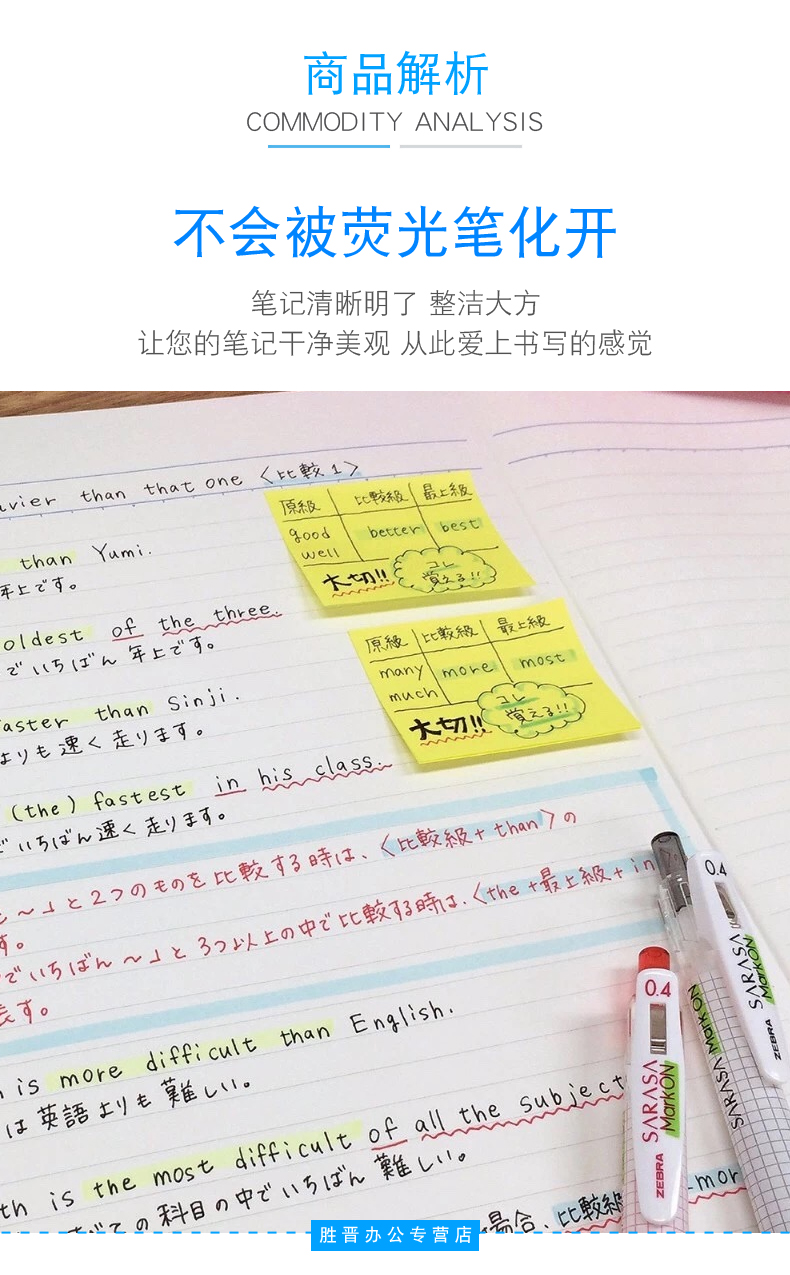 商品解析
COMMODITY ANALYSIS
不会被荧光笔化开
笔记清晰明了 整洁大方
让您的笔记干净美观 从此爱上书写的感觉
than that one 〈比較1〉
原級 比較級 最上級
good better best
well
大切!! コレ
覚える!!
than Yumi.
年上です。
oldest of the three.
でいちばん年上です。
原級 比較級 最上級
many more most
much
大切!! コレ
覚える!!
than Sinji.
よりも速く走ります。
(the) fastest in his class.
いちばん速く走ります。
〜」と2つのものを比較する時は、〈比較級+than〉の
す。
でいちばん〜」と3つ以上の中で比較する時は、〈the+最上級+in
表す。
is more difficult than English.
は英語よりも難しい。
is the most difficult of all the subject
ての科目の中でいちばん難しい。
場合、比較級
0.4
SARASA
MarkON
ZEBRA
0.4
SARASA
MarkON
ZEBRA
SARASA MarkON
胜晋办公专营店